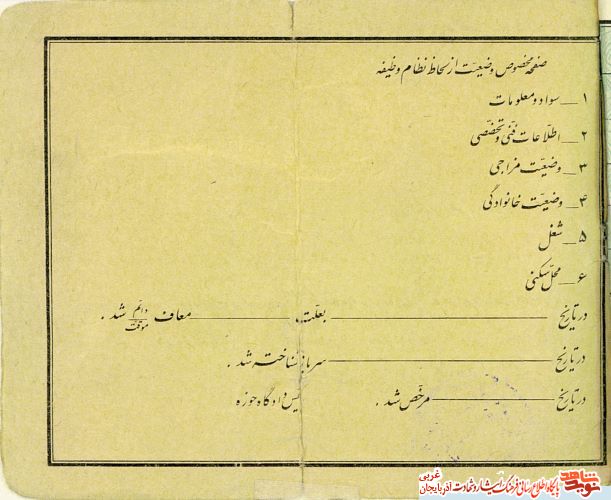 صفحه مخصوص وضعیت از لحاظ نظام وظیفه
۱ــ سواد و معلومات
۲ــ اطلاعات فنّی و تخصّصی
۳ــ وضعیّت مزاجی
۴ــ وضعیّت خانوادگی
۵ــ شغل
۶ــ محلّ سکنی
در تاریخ ــــــ بعلّت ــــــ معاف دائم موقّت شد .
در تاریخ ــــــ سرباز شناخته شد .
در تاریخ ــــــ مرخّص شد . رئیس دادگاه حوزه
نوید شاهد
پایگاه اطلاع رسانی فرهنگ ایثار و شهادت آذربایجان غربی